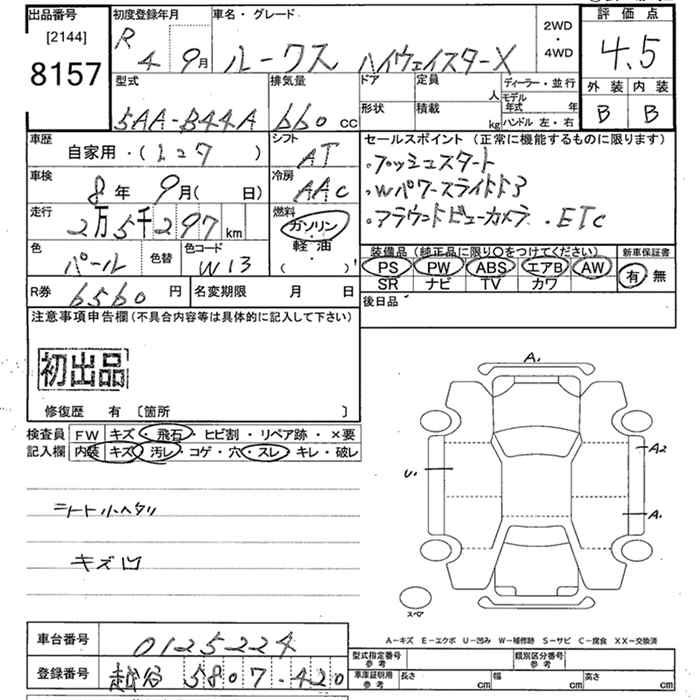 出品番号 初度登録年月 車名・グレード 2WD・4WD 評価点
[2144] R 4 9月 ルークス ハイウェイスターX 4.5
8157 型式 排気量 ドア 定員 人 ディーラー・並行 外装 内装
5AA-B44A 660 cc 形状 積載 kg モデル年式 年 ハンドル 左・右 B B
車歴 シフト セールスポイント (正常に機能するものに限ります)
自家用・( ) AT ・プッシュスタート
車検 8年 9月( 日) 冷房 AAC ・Wパワースライドドア
走行 2万5千297km 燃料 ガソリン ・アラウンドビューカメラ ・ETC
色 パール 色替 色コード W13 軽油 ( )
装備品 (純正品に限り○をつけてください) 新車保証書
PS PW ABS エアB AW 有 無
SR ナビ TV カワ
R券 6560円 名変期限 月 日 後日品
注意事項申告欄(不具合内容等は具体的に記入して下さい)
初出品
修復歴 有 〔箇所 〕
検査員 FW キズ・飛石・ヒビ割・リペア跡・×要
記入欄 内装 キズ・汚レ・コゲ・穴・スレ・キレ・破レ
A1
A2
U1
A1
シート小ヘタリ
キズ凹
スペア
A-キズ E-エクボ U-凹み W-補修跡 S-サビ C-腐食 XX-交換済
車台番号 0125224 型式指定番号 参考 類別区分番号 参考
登録番号 越谷 580 7-420 車庫証明用 参考 長さ cm 幅 cm 高さ cm